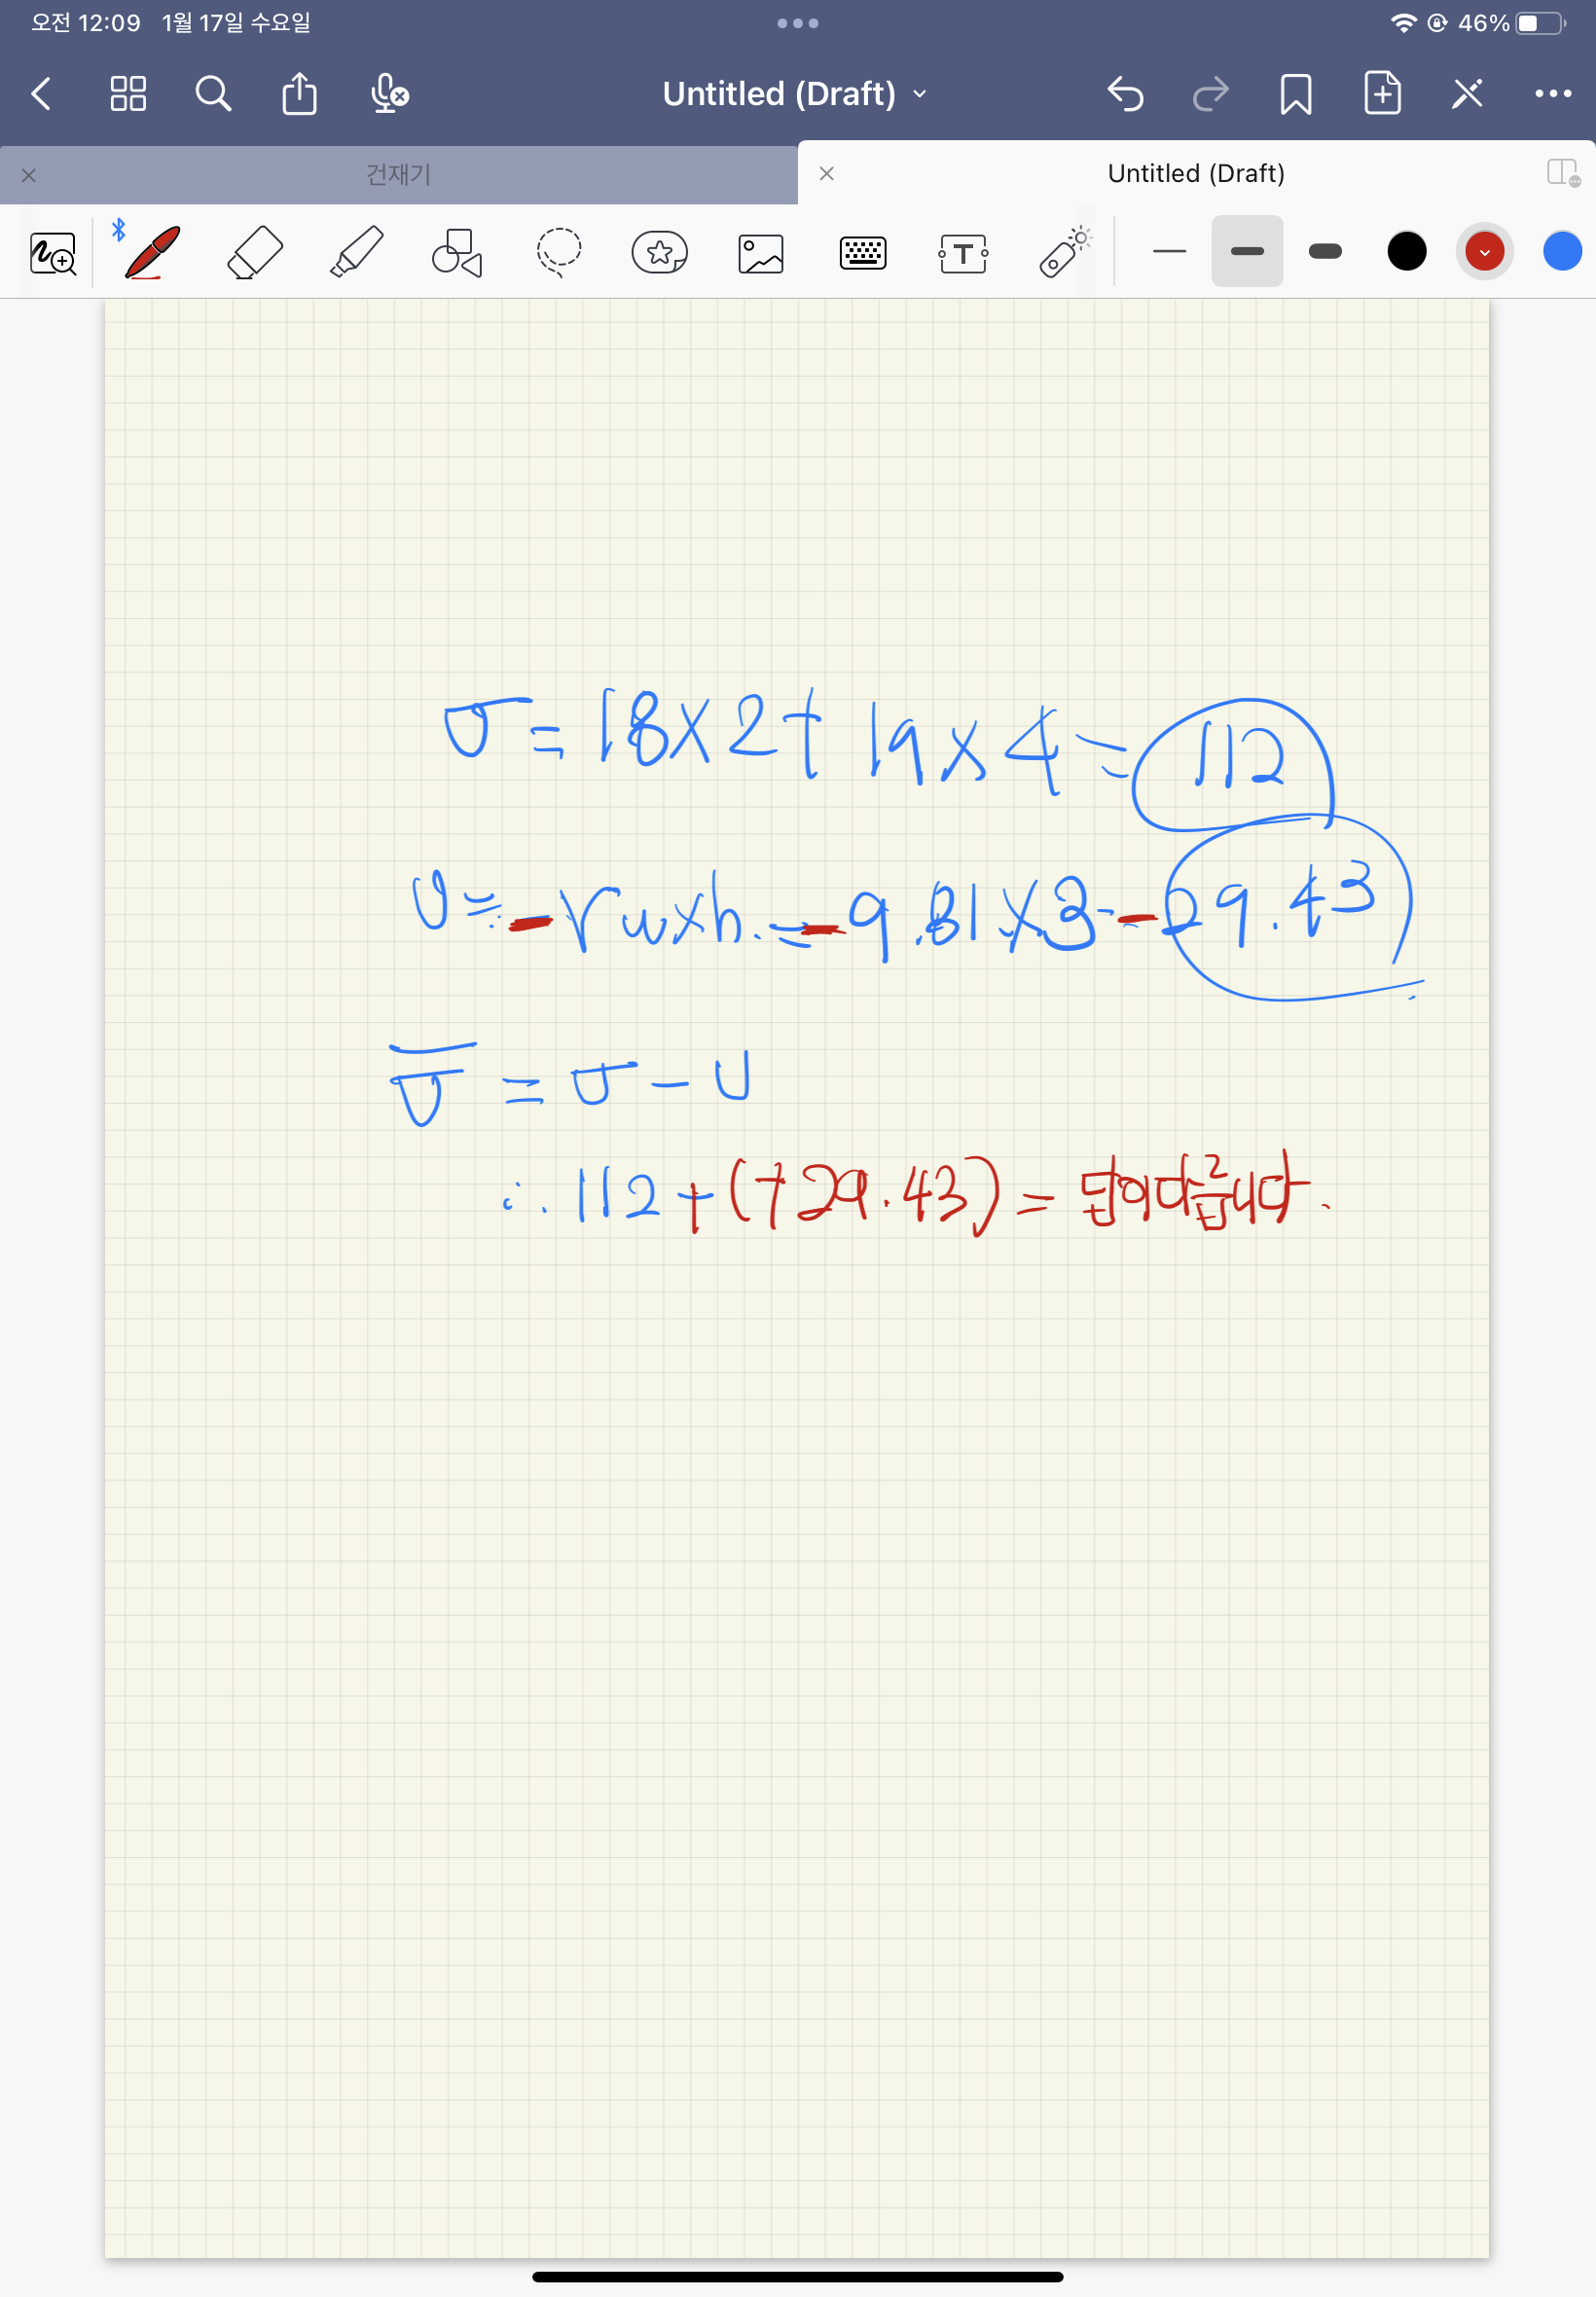 오전 12:09 1월 17일 수요일
46%
Untitled (Draft)
건재기
Untitled (Draft)
T
σ = 18 x 2 + 19 x 4 = 112
U = - rw x h. = - 9.81 x 3 = - 29.43
σ̅ = σ - U
∴ 112 + (+ 29.43) =